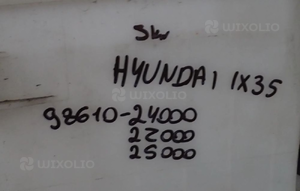 Skv
HYUNDAI IX35
98610-24000
22000
25000
WIXOLIO
WIXOLIO
WIXOLIO
WIXOLIO